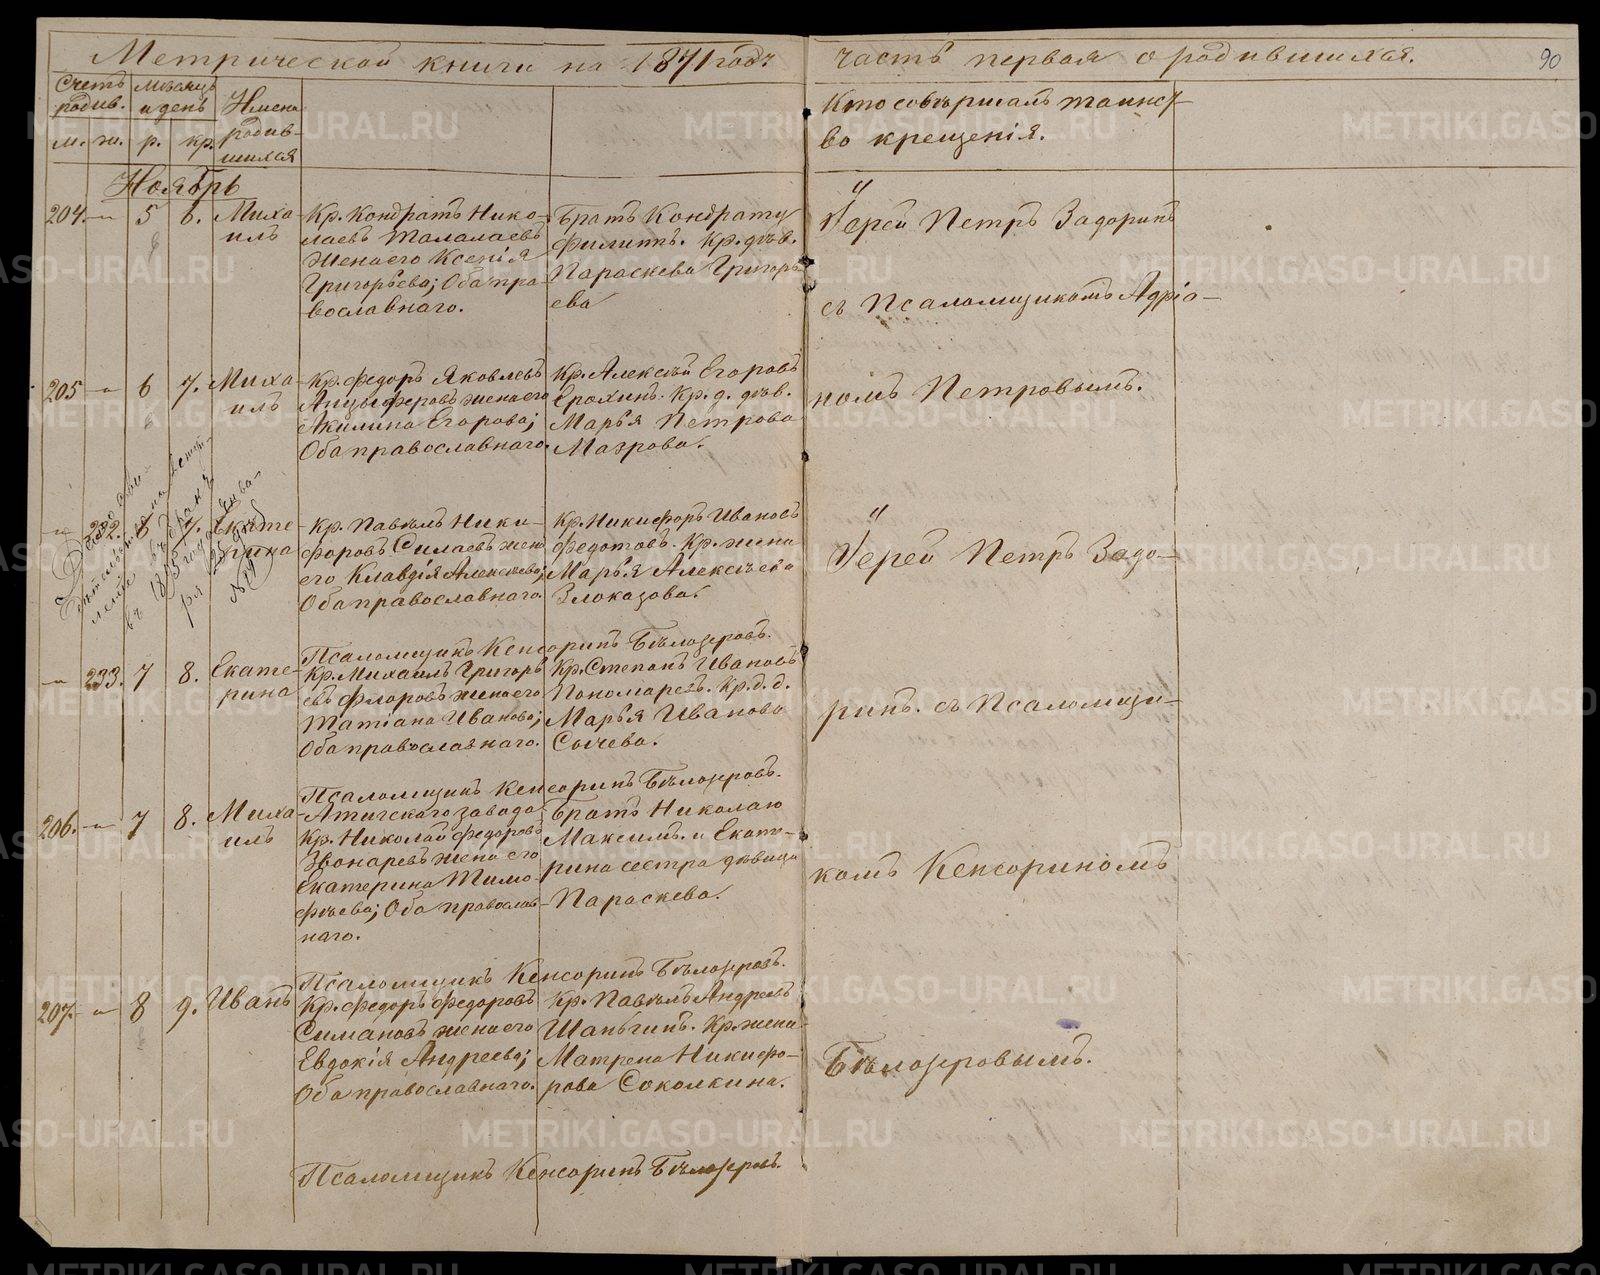 Метрической книги на 1871 годъ
часть первая о родившихся.
90
Счетъ родив.
м. ж.
Мѣсяцъ и день
р. кр.
Имена родив-
шихся
Кто совершалъ таинст-
во крещенія.
Ноябрь
204. — 5 6. Миха-
илъ
Кр. Кондратъ Нико-
лаевъ Талалаевъ
жена его Ксенія
Григорьева; Оба пра-
вославнаго.
Братъ Кондрату
Филиппъ. Кр. дѣв.
Параскева Григорь-
ева
Іерей Петръ Задоринъ
съ Псаломщикомъ Адріа-
номъ Петровымъ.
205 — 6 7. Миха-
илъ
Кр. Федоръ Яковлевъ
Анцыферовъ жена его
Акилина Егорова;
Оба православнаго.
Кр. Алексѣй Егоровъ
Ерохинъ. Кр. д. дѣв.
Марья Петрова
Махрова.
— 232. 6 7. Екате-
рина
Кр. Павелъ Ники-
форовъ Силаевъ жена
его Клавдія Алексѣева;
Оба православнаго.
Кр. Никифоръ Ивановъ
Федотовъ. Кр. жена
Марья Алексѣева
Злоказова.
Псаломщикъ Кенсоринъ Бѣлозеровъ.
Іерей Петръ Задо-
ринъ. съ Псаломщи-
комъ Кенсориномъ
Бѣлозеровымъ.
— 233. 7 8. Екате-
рина
Кр. Михаилъ Григорь-
евъ Флоровъ жена его
Татіана Иванова;
Оба православнаго.
Кр. Степанъ Ивановъ
Пономаревъ. Кр. д. д.
Марья Иванова
Сычева.
Псаломщикъ Кенсоринъ Бѣлозеровъ.
206. — 7 8. Миха-
илъ
Атигскаго завода
Кр. Николай Федоровъ
Звонаревъ жена его
Екатерина Тимо-
фѣева; Оба православ-
наго.
Братъ Николаю
Максимъ. и Екате-
рина сестра дѣвица
Параскева.
Псаломщикъ Кенсоринъ Бѣлозеровъ.
207. — 8 9. Иванъ
Кр. Федоръ Федоровъ
Симановъ жена его
Евдокія Андреева;
Оба православнаго.
Кр. Павелъ Андреевъ
Шаньгинъ. Кр. жена
Матрена Никифо-
рова Соколкина.
Псаломщикъ Кенсоринъ Бѣлозеровъ.
METRIKI.GASO-URAL.RU